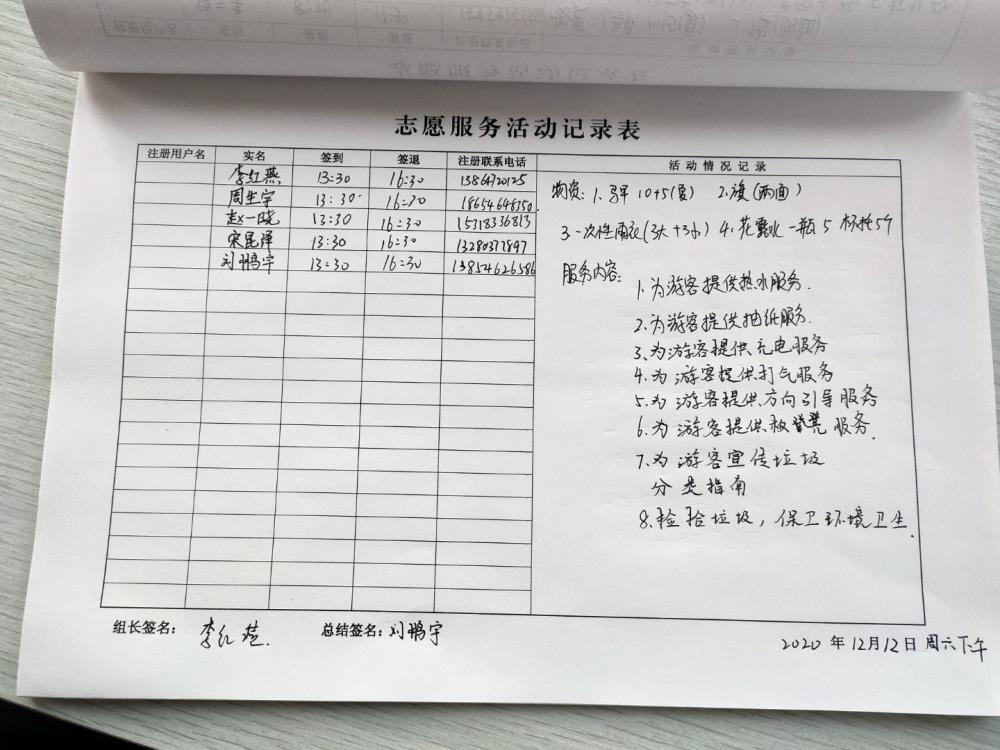 志愿服务活动记录表
注册用户名 实名 签到 签退 注册联系电话 活动情况记录
李红燕 13:30 16:30 13864720125
周生宇 13:30 16:30 18654648350
赵一晓 13:30 16:30 15318336813
宋昆泽 13:30 16:30 13280373897
刘鹏宇 13:30 16:30 13854626586
物资: 1. 马甲 10+5(夏) 2. 旗(两面)
3. 一次性雨衣(3大+3小) 4. 花露水一瓶 5
服务内容:
1. 为游客提供热水服务.
2. 为游客提供抽纸服务.
3. 为游客提供充电服务
4. 为游客提供打气服务
5. 为游客提供方向引导服务
6. 为游客提供板凳服务.
7. 为游客宣传垃圾
分类指南
8. 捡拾垃圾，保卫环境卫生.
组长签名: 李红燕. 总结签名: 刘鹏宇
2020 年 12月12日 周六下午